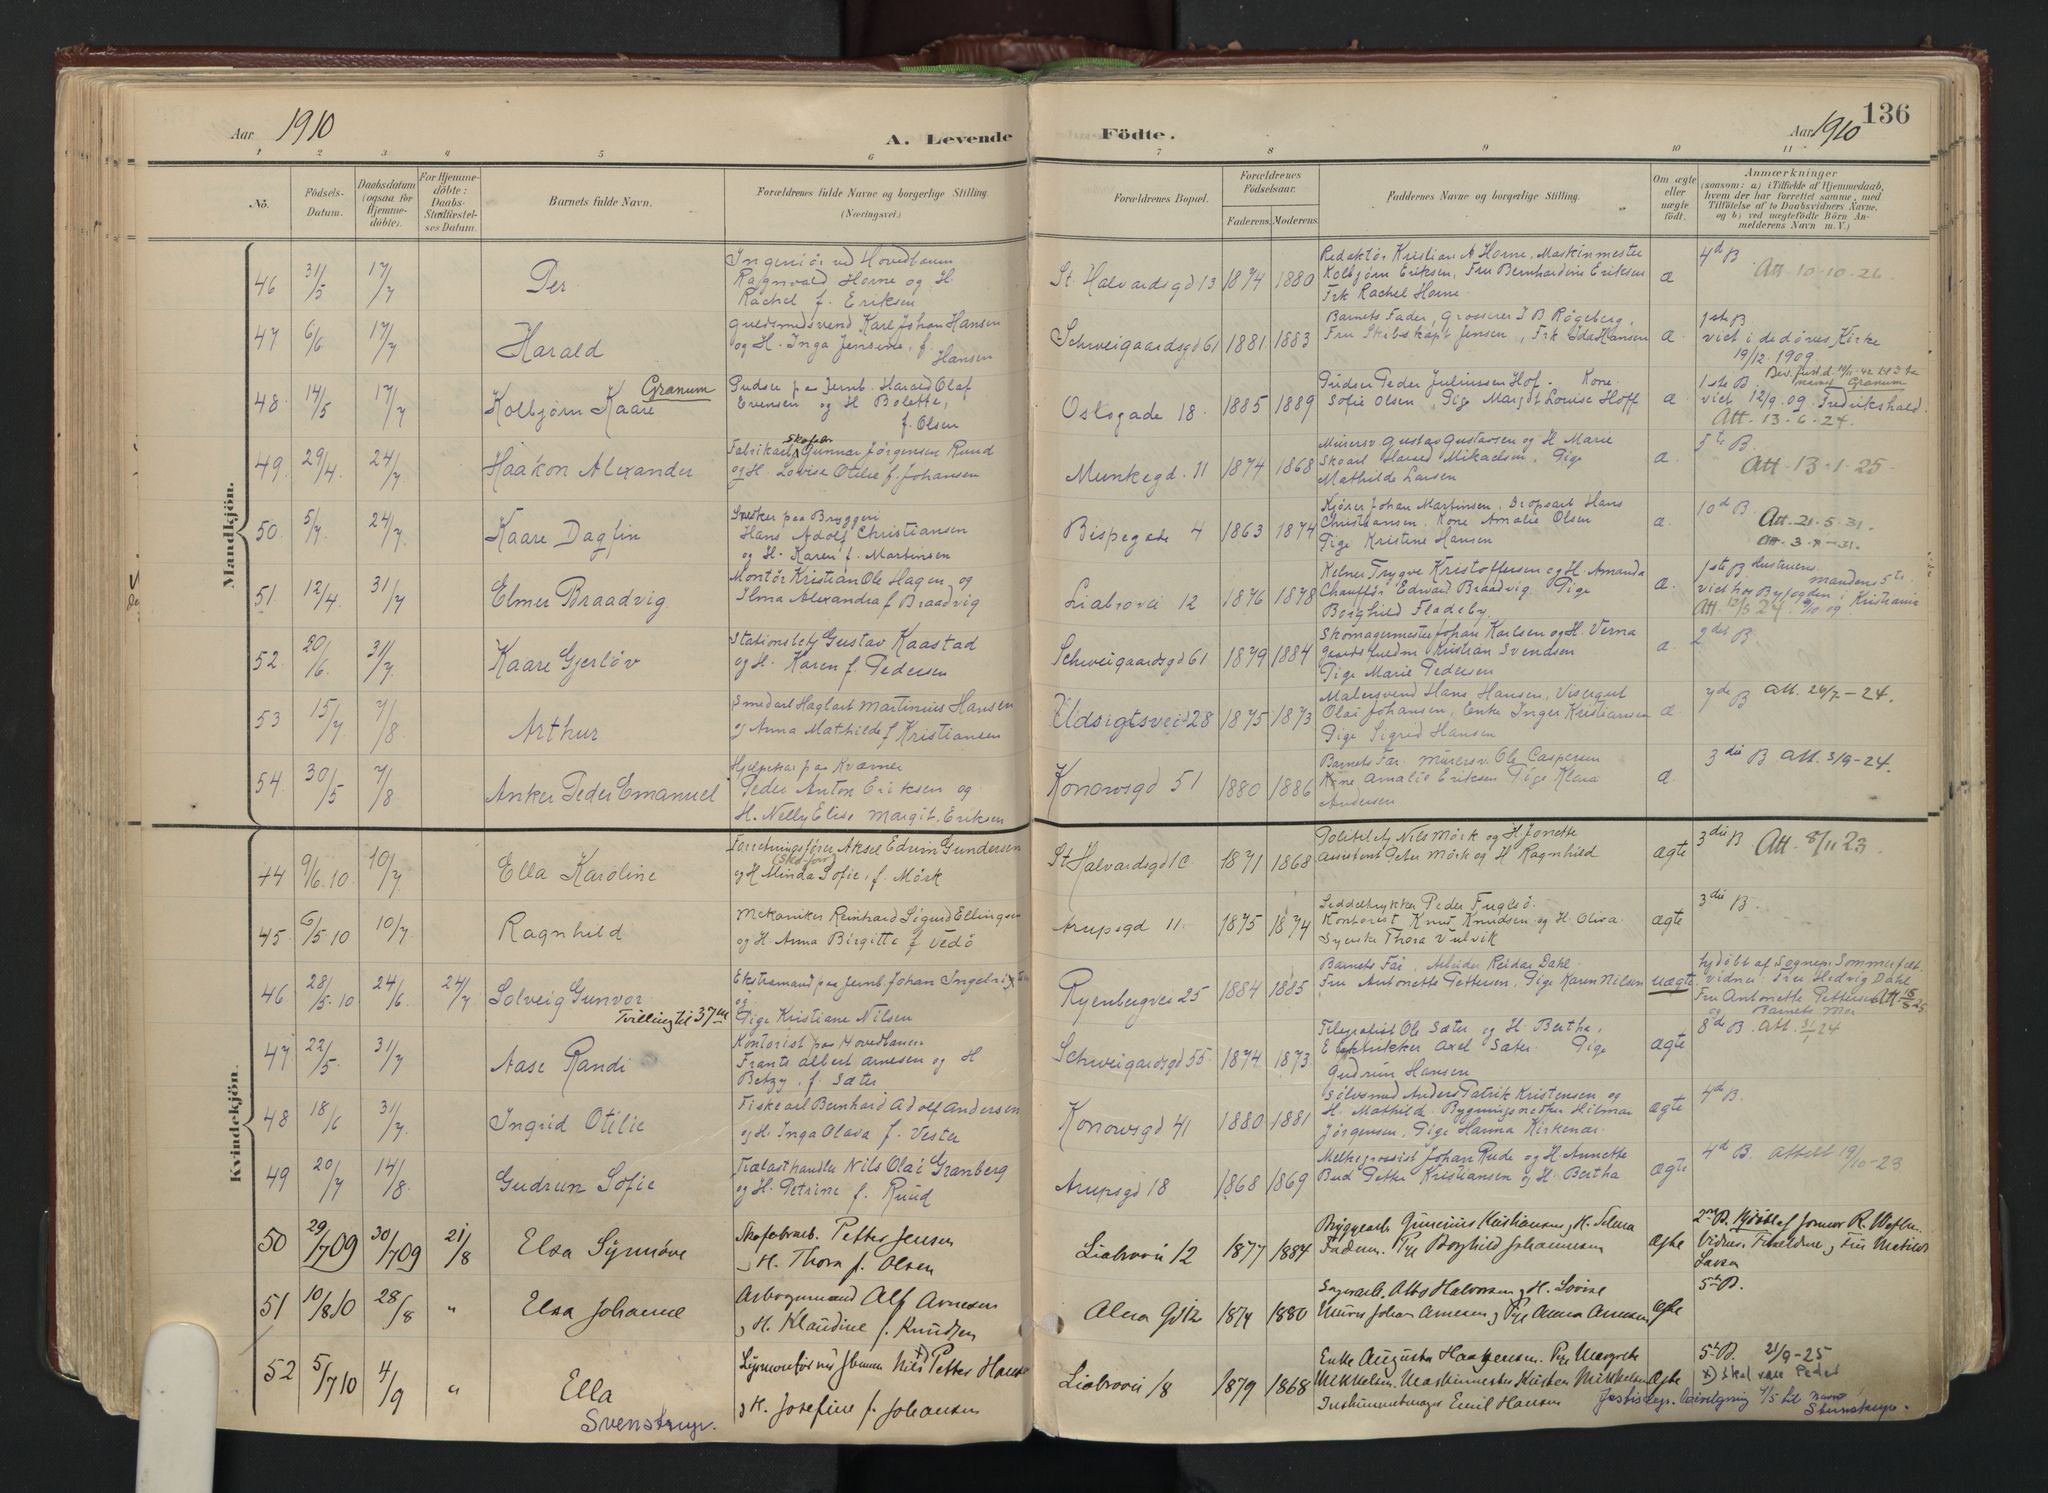 136
Aar 1910
A. Levende Födte.
Aar 1910
1 2 3 4 5 6 7 8 9 10 11
No.
Födsels-Datum.
Daabsdatum (ogsaa for Hjemmedöbte).
For Hjemmedöbte: Daabs-Stadfæstelses Datum.
Barnets fulde Navn.
Forældrenes fulde Navne og borgerlige Stilling. (Næringsvei.)
Forældrenes Bopæl.
Forældrenes Födselsaar.
Faderens. Moderens.
Faddernes Navne og borgerlige Stilling.
Om ægte eller uægte födt.
Anmærkninger
(saasom: a) i Tilfælde af Hjemmedaab, hvem der har forrettet samme, med Tilföielse af to Daabsvidners Navne, og b) ved uægtefödte Börn Anmelderens Navn m. V.)
Mandkjön.
46 31/5 17/7 Per
Ingeniör ved Hovedbanen
Ragnvald Horne og H.
Rachel f. Eriksen
St. Halvardsgd 13 1874 1880
Redaktör Kristian A Horne, Maskinmester
Kolbjörn Eriksen, Fru Bernhardine Eriksen
Frk Rachel Horne
a 4de B.
Att 10-10-26
47 6/6 17/7 Harald
Guldsmedsvend Karl Johan Hansen
og H. Inga Jensine, f.
Hansen
Schweigaardsgd 61 1881 1883
Barnets Fader, Grosserer J B Rögeberg,
Fru Skibskapt Jensen, Frk Uda Hansen
a. 1ste B.
viet i de döves Kirke
19/12 1909
48 14/5 17/7 Kolbjörn Kaare Granum
Pudser paa Jernb. Harald Olaf
Evensen og H Bolette,
f. Olsen
Oslogade 18. 1885 1889
Pudser Peder Juliussen Hof. Kone
Sofie Olsen, Pige Margot Louise Hoff
a 1ste B. navnet Granum
viet 12/9 09 Fredrikshald.
Att. 13-6-24.
49. 29/4. 24/7 Haakon Alexander
Fabrikarb. Skofabr Gunnar Jörgensen Ruud
og H. Lovise Otilie f. Johansen
Munkegd. 11 1874 1868
Murersv Gustav Gustavsen og H. Marie
Skoarb Harald Mikaelsen, Pige
Mathilde Larsen
a. 5te B.
Att 13-1-25
50. 5/7. 24/7 Kaare Dagfin
paa Bryggeri
Hans Adolf Christiansen
og H. Karen f. Martinsen
Bispegade 4 1863 1874
Kjörer Johan Martinsen, Hans
Christiansen, Kone Amalie Olsen
Pige Kristine Hansen
a. 10de B.
Att. 21-5-31.
51. 12/4. 31/7 Elmer Braadvig
Montör Kristian Ole Hagen og
Ilma Alexandra f Braadvig
Liabrovei 12 1876 1878
Kelner Trygve Kristoffersen og H. Amanda
Chaufför Edvard Braadvig Pige
Borghild Fladeby
a. 1ste B. Hustruens
mandens 5te.
viet hos Byfogden i Kristiania
52. 20/6. 31/7 Kaare Gjerlöv
Stationsbetj Gustav Kaastad
og H. Karen f. Pedersen
Schweigaardsgd 61 1879 1884
Skomagermester Johan Karlsen og H. Verna
Kristian Svendsen
Pige Marie Pedersen
a. 2den B.
53 15/7 7/8 Arthur
Smedarb Haglart Martinius Hansen
og Anna Mathilde f Kristiansen
Udsigtsvei 28 1875 1873
Malersvend Hans Hansen, Visergut
Olai Johansen, Enke Inger Kristiansen
Pige Sigrid Hansen
a. 7de B Att. 26/7-24.
54. 30/5 7/8 Anker Peder Emanuel
paa Kværner
Peder Anton Eriksen og
H. Nelly Elise Margit. Eriksen
Konowsgd 51 1880 1886
Barnets Far. Murersv. Ole Caspersen
Kone Amalie Eriksen Pige Klara
Andersen
a. 3die B Att. 3/9-24.
Kvindekjön.
44 9/6.10 10/7 Ella Karoline
Forretningsförer Aksel Edvin Gundersen
og H Minda Sofie, f. Mörk
St Halvardsgd 1c 1871 1868
Politibetj Nils Mörk og H Jonette
Assistent Peter Mörk og H Ragnhild
ægte 3die B Att. 8/11 23
45. 6/5 10 10/7 Ragnhild
Mekaniker Reinhard Sigurd Ellingsen
og H. Anna Birgitte f Vedö
Arupsgd 11. 1875 1874
Seddeltrykker Peder Fuglsö
Kontorist Knut Knudsen og H. Oliva
Syerske Thora Vulvik
ægte 3die B.
46 28/5.10 24/6 24/7 Solveig Gunvor
Tvilling til 37 me
Ekstramand paa Jernb. Johan
og
Pige Kristiane Nilsen
Ryenbergvei 25 1884 1885
Barnets Far, Arbeider Reidar Dahl
Fru Antonette Pettersen, Pige Karen Nilsen
uægte
hjdöbt af Sognepr. Sommerfelt
vidner: Fru Hedvig Dahl
Fru Antonette Pettersen
og Barnets Mor
Att 15/8-25
47 22/5. 31/7 Aase Randi
Kontorist paa Hovedbanen
Frants Albert Arnesen og H
Betzy, f. Sæter
Schweigardsgd 55. 1874 1873
Telegrafist Ole Sæter og H. Bertha,
Elektrikker Axel Sæter. Pige
Gudrun Hansen
ægte 8de B. Att. 3/1 24
48 18/6 31/7 Ingrid Otilie
Fiskearb Bernhard Adolf Andersen
og H. Inga Olava f. Vester
Konowsgd 41 1880 1881
Sölvsmed Anders Patrik Kristensen og
H. Mathilde. Hilmar
Jörgensen, Pige Hanna Kirkenær
ægte 4de B.
49 20/7 14/8. Gudrun Sofie
Trælasthandler Nils Olai Granberg
og H. Petrine f. Ruud
Arupsgd 18 1868 1869
Melkegrossist Johan Rude og H. Annette
Bud Petter Kristiansen og H. Bertha
ægte 4de B. Attest 19/10-23
50 29/7 09 30/7 09 21/8 Elsa Synnöve
Petter Jensen
og H. Thora f. Olsen
Liabrovei 12 1877 1884
Bryggearb. Kristiansen, H. Selma
Faderen. Pige Borghild Johannesen
ægte 2den B. Hjdöbt af Jomor R. Wefln
51 10/8 10 28/8 " Elsa Johanne
Alf Arnesen
og H. Klaudine f. Knudsen
Alna Gd 12 1874 1880
Sagarb. Otto Halvorsen og H. Lovise
Murer Johan Arnesen og Pige Anna Arnesen
ægte 5te B.
52 5/7 10 4/9 " Ella
Svenstrup.
Nils x) Petter Hansen
og H. Josefine f. Johansen
Liabrovei 18 1879 1868
Enke Augusta Haagensen. Pige Margrethe
Mikkelsen, Maskinmester Kristen Mikkelsen
Instrumentmager Emil Hansen
ægte 5te B. 21/9-25
x) skal være Peder
Justisdep. bevilgning 4/5 til navn
Svenstrup.